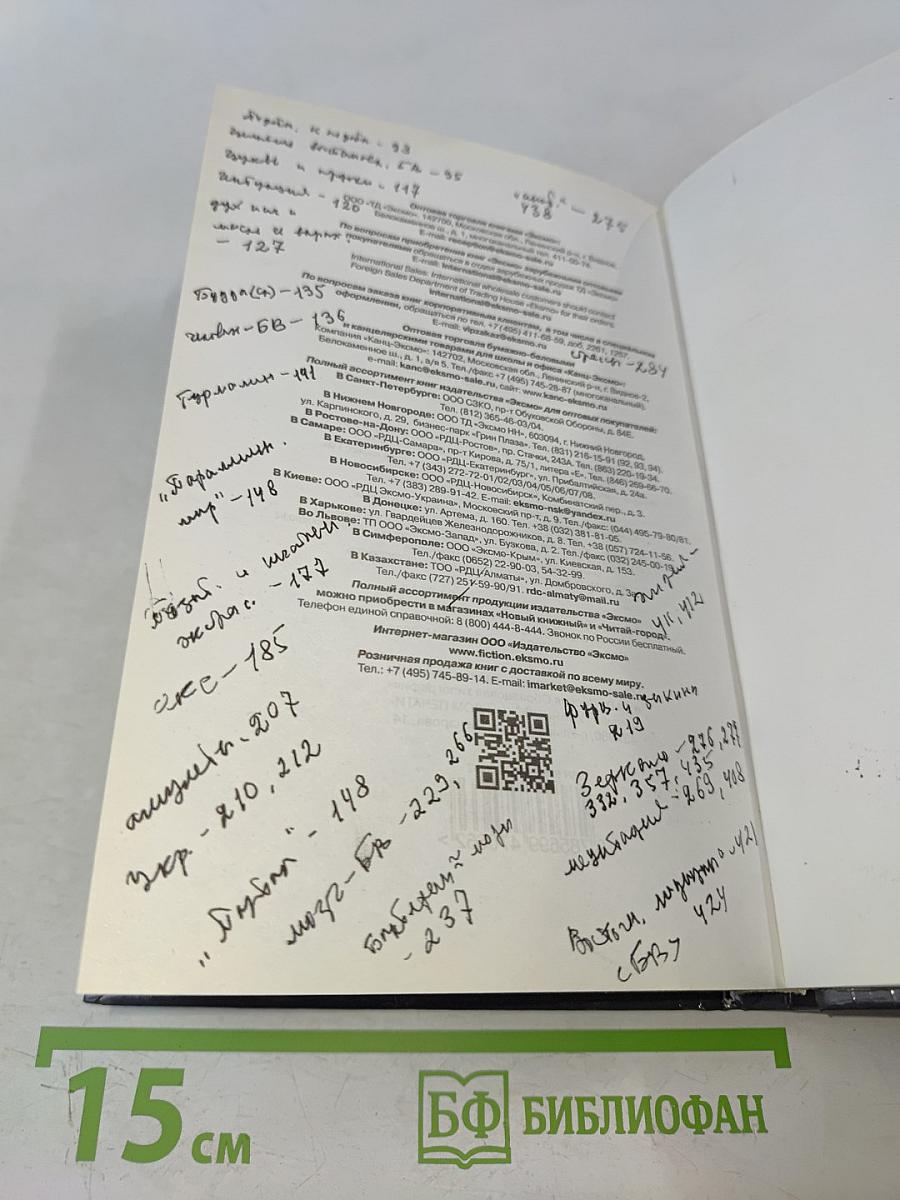 - 93
- 95
- 117
- 120
- 127
438
- 275
Оптовая торговля книгами «Эксмо»:
ООО «ТД «Эксмо». 142700, Московская обл., Ленинский р-н, г. Видное,
Белокаменное ш., д. 1, многоканальный тел. 411-50-74.
E-mail: reception@eksmo-sale.ru
По вопросам приобретения книг «Эксмо» зарубежными оптовыми
покупателями обращаться в отдел зарубежных продаж ТД «Эксмо»
E-mail: international@eksmo-sale.ru
International Sales: International wholesale customers should contact
Foreign Sales Department of Trading House «Eksmo» for their orders.
international@eksmo-sale.ru
По вопросам заказа книг корпоративным клиентам, в том числе в специальном
оформлении, обращаться по тел. +7 (495) 411-68-59, доб. 2261, 1257.
E-mail: vipzakaz@eksmo.ru
Оптовая торговля бумажно-беловыми
и канцелярскими товарами для школы и офиса «Канц-Эксмо»:
Компания «Канц-Эксмо»: 142702, Московская обл., Ленинский р-н, г. Видное-2,
Белокаменное ш., д. 1, а/я 5. Тел./факс +7 (495) 745-28-87 (многоканальный).
e-mail: kanc@eksmo-sale.ru, сайт: www.kanc-eksmo.ru
- 284
- 135
- БВ - 136
Турмалин - 141
Полный ассортимент книг издательства «Эксмо» для оптовых покупателей:
В Санкт-Петербурге: ООО СЗКО, пр-т Обуховской Обороны, д. 84Е.
Тел. (812) 365-46-03/04.
В Нижнем Новгороде: ООО ТД «Эксмо НН», 603094, г. Нижний Новгород,
ул. Карпинского, д. 29, бизнес-парк «Грин Плаза». Тел. (831) 216-15-91 (92, 93, 94).
В Ростове-на-Дону: ООО «РДЦ-Ростов», пр. Стачки, 243А. Тел. (863) 220-19-34.
В Самаре: ООО «РДЦ-Самара», пр-т Кирова, д. 75/1, литера «Е». Тел. (846) 269-66-70.
В Екатеринбурге: ООО «РДЦ-Екатеринбург», ул. Прибалтийская, д. 24а.
Тел. +7 (343) 272-72-01/02/03/04/05/06/07/08.
В Новосибирске: ООО «РДЦ-Новосибирск», Комбинатский пер., д. 3.
Тел. +7 (383) 289-91-42. E-mail: eksmo-nsk@yandex.ru
В Киеве: ООО «РДЦ Эксмо-Украина», Московский пр-т, д. 9. Тел./факс: (044) 495-79-80/81.
В Донецке: ул. Артема, д. 160. Тел. +38 (032) 381-81-05.
В Харькове: ул. Гвардейцев Железнодорожников, д. 8. Тел. +38 (057) 724-11-56.
Во Львове: ТП ООО «Эксмо-Запад», ул. Бузкова, д. 2. Тел./факс (032) 245-00-19.
В Симферополе: ООО «Эксмо-Крым», ул. Киевская, д. 153.
Тел./факс (0652) 22-90-03, 54-32-99.
В Казахстане: ТОО «РДЦ-Алматы», ул. Домбровского, д. 3а.
Тел./факс (727) 251-59-90/91. rdc-almaty@mail.ru
Полный ассортимент продукции издательства «Эксмо»
можно приобрести в магазинах «Новый книжный» и «Читай-город».
Телефон единой справочной: 8 (800) 444-8-444. Звонок по России бесплатный.
Интернет-магазин ООО «Издательство «Эксмо»
www.fiction.eksmo.ru
Розничная продажа книг с доставкой по всему миру.
Тел.: +7 (495) 745-89-14. E-mail: imarket@eksmo-sale.ru
мир" - 148
- 177
- 185
амулеты - 207
укр. - 210, 212
- 148
мозг - БВ - 229, 266
- 237
411, 412
219
Зеркало - 276, 277
332, 357, 435
медитация - 269, 408
- 421
424
<БВ>
15 см
БФ БИБЛИОФАН